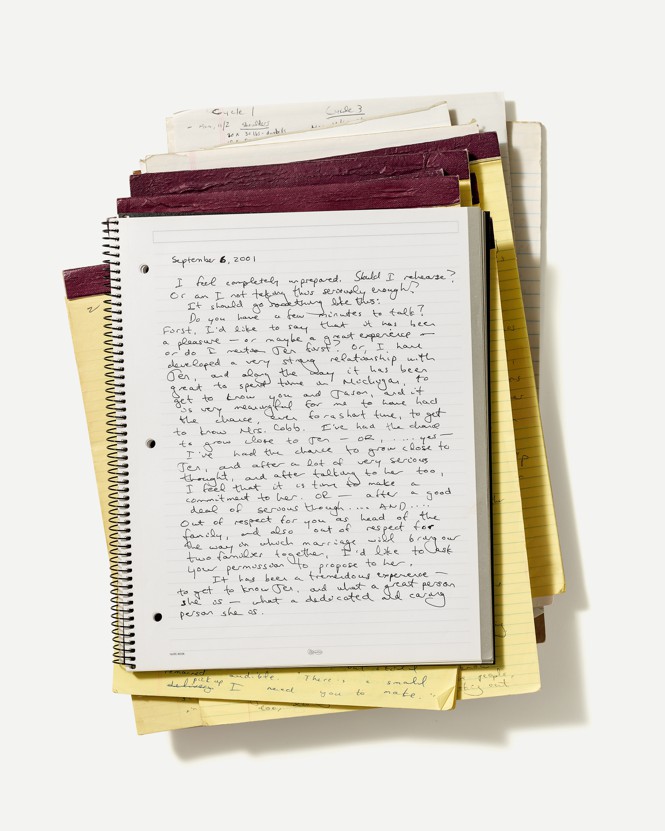 Cycle 1 Cycle 3
September 6, 2001
I feel completely unprepared. Should I rehearse?
Or am I not taking this seriously enough?
It should go something like this:
Do you have a few minutes to talk?
First, I'd like to say that it has been
a pleasure — or maybe a great experience —
or do I mention Jen first? Or I have
developed a very strong relationship with
Jen, and along the way it has been
great to spend time in Michigan, to
get to know you and Jason, and it
is very meaningful for me to have had
the chance, even for a short time, to get
to know Mrs. Cobb. I've had the chance
to grow close to Jen — OR, ..... yes —
I've had the chance to grow close to
Jen, and after a lot of very serious
thought, and after talking to her too,
I feel that it is time to make a
commitment to her. OR — after a good
deal of serious though .... AND ....
Out of respect for you as head of the
family, and also out of respect for
the way in which marriage will bring our
two families together, I'd like to ask
your permission to propose to her.
It has been a tremendous experience —
to get to know Jen, and what a great person
she is — what a dedicated and caring
person she is.
pick up audible. There is a small
I need you to make...